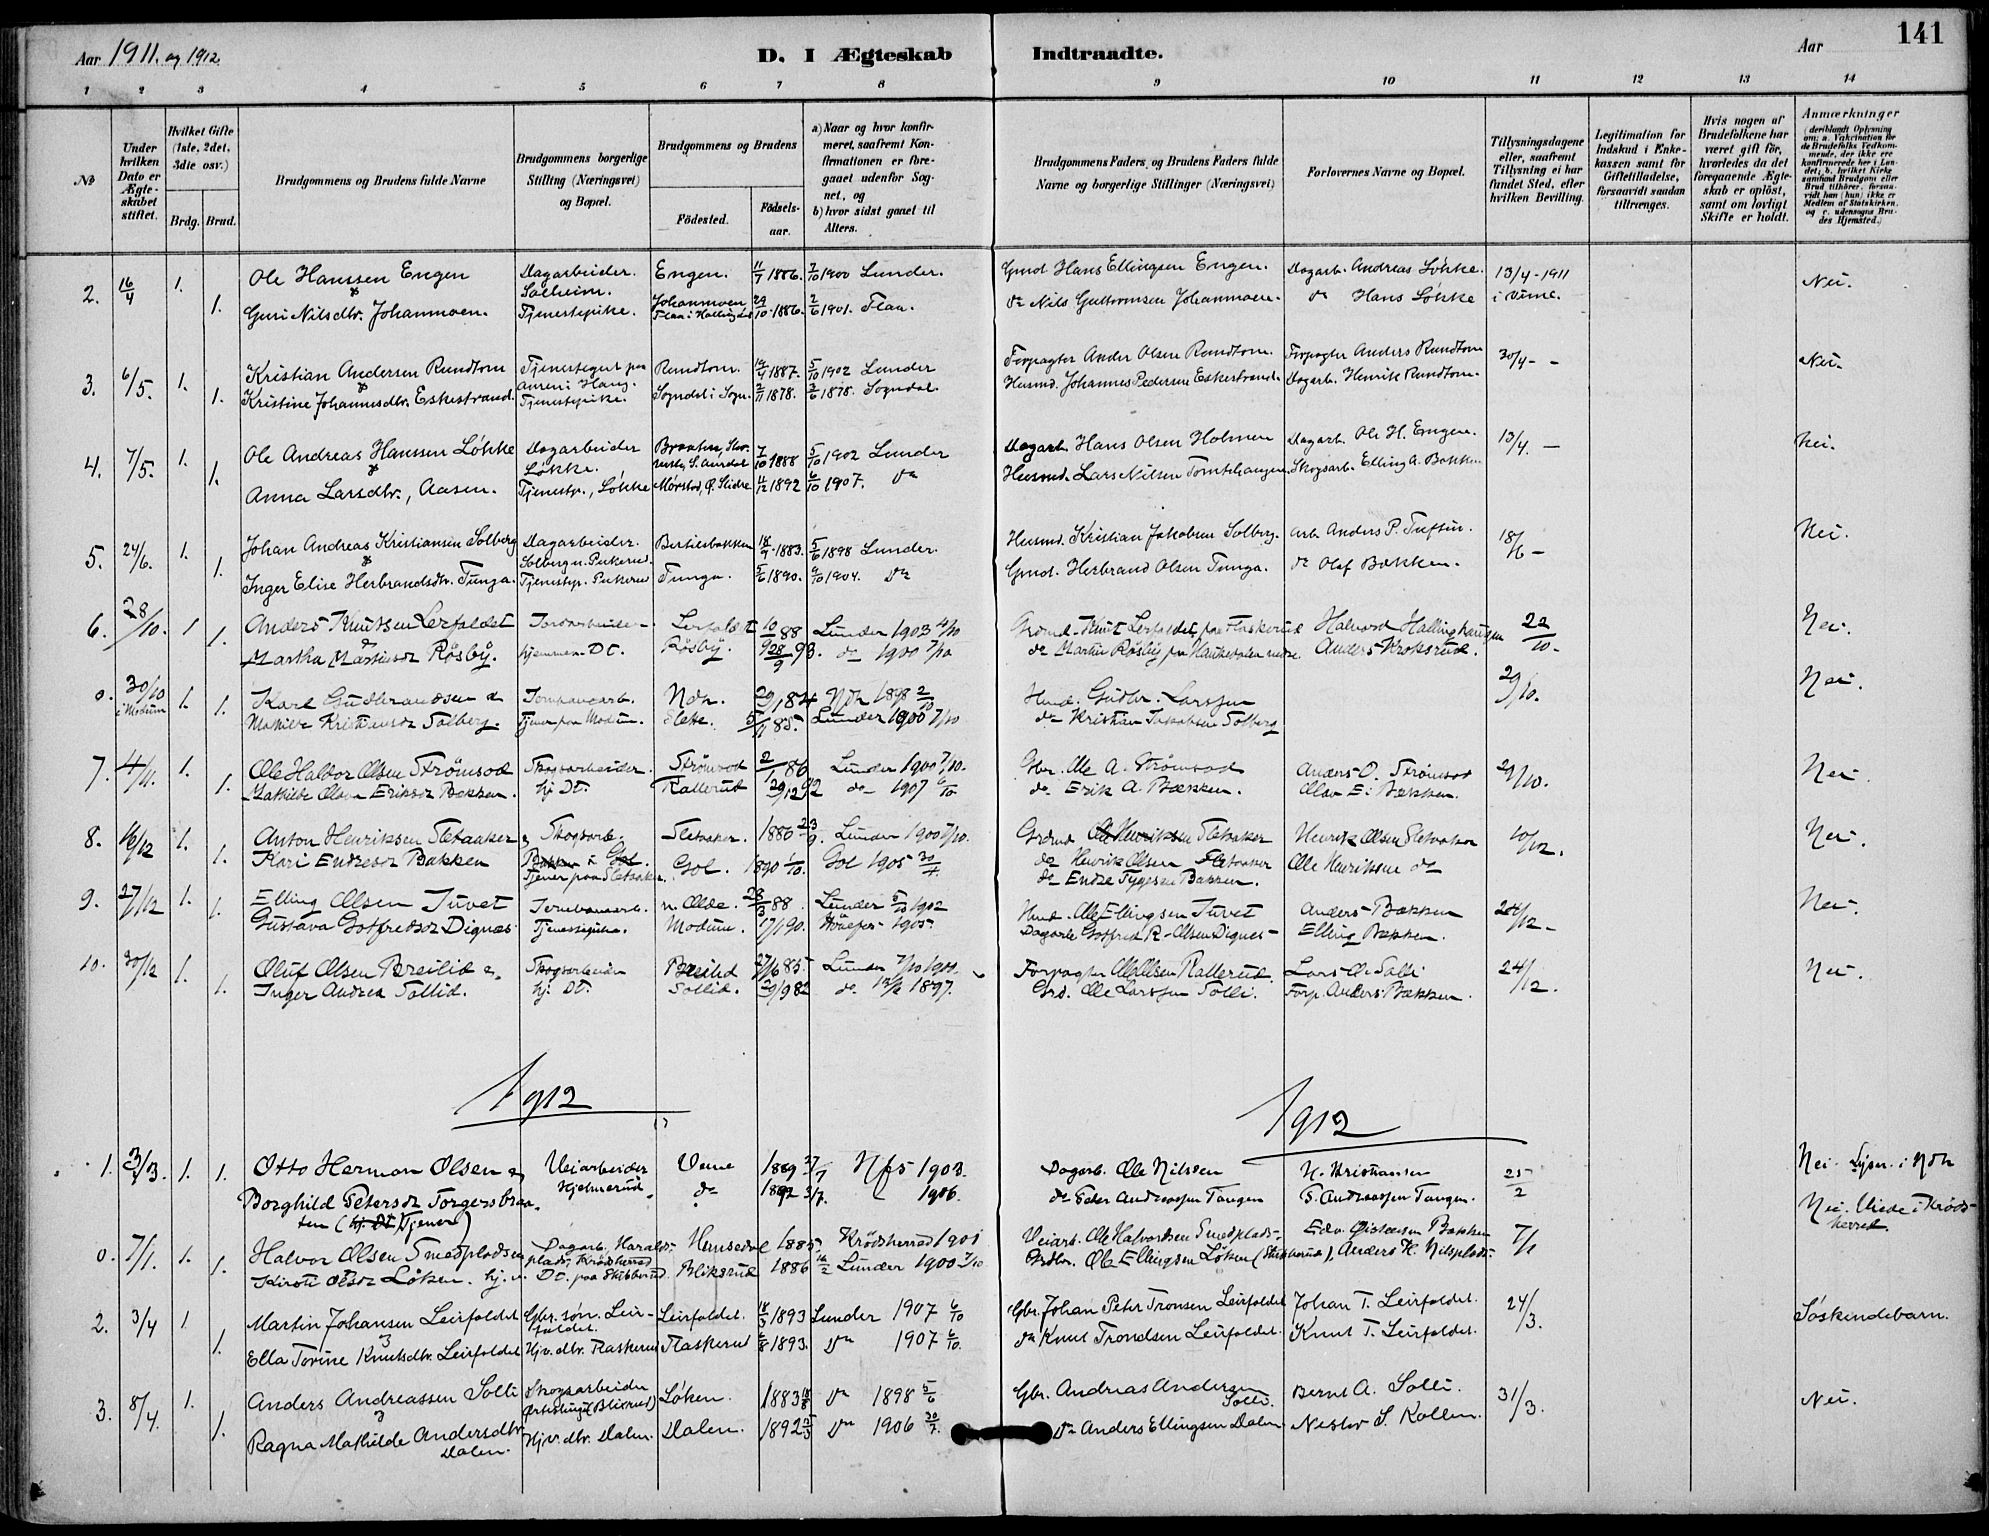 Aar 1911. og 1912
D. I Ægteskab Indtraadte.
Aar 141
1 2 3 4 5 6 7 8 9 10 11 12 13 14
No
Under hvilken Dato er Ægteskabet stiftet.
Hvilket Gifte (1ste, 2det, 3die osv.)
Brdg. Brud.
Brudgommens og Brudens fulde Navne
Brudgommens borgerlige Stilling (Næringsvei) og Bopæl.
Brudgommens og Brudens
Fødested. Fødsels-aar.
a) Naar og hvor konfirmeret, saafremt Konfirmationen er foregaaet udenfor Sognet, og
b) hvor sidst gaaet til Alters.
Brudgommens Faders og Brudens Faders fulde Navne og borgerlige Stillinger (Næringsvei)
Forlovernes Navne og Bopæl.
Tillysningsdagene eller, saafremt Tillysning ei har fundet Sted, efter hvilken Bevilling.
Legitimation for Indskud i Enkekassen samt for Giftetilladelse, forsaavidt saadan tiltrænges.
Hvis nogen af Brudefolkene har været gift før, hvorledes da det foregaaende Ægteskab er opløst, samt om lovligt Skifte er holdt.
Anmærkninger (deriblandt Oplysning om: a. Vakcination for de Brudefolks Vedkommende, der ikke ere konfirmerede her i Landet; b. hvilket Kirkesamfund Brudgom eller Brud tilhører, forsaavidt han (hun) ikke er Medlem af Statskirken, og c. udensogns Brudes Hjemsted.)
2. 16/4 1. Ole Hanssen Engen Dagarbeider. Solheim. Engen. 11/7 1886. 7/10 1900 Lunder. Gmd. Hans Ellingsen Engen. Dagarb. Andreas Løkke. 13/4-1911 Nei.
1. Guri Nilsdtr. Johannmoen. Tjenestepike. Johannmoen Flaa i Hallingdal 29/10 1886. 2/6 1901. Flaa. do Nils Guttormsen Johannmoen. do Hans Løkke i Vime.
3. 6/5. 1. Kristian Andersen Rundtom Tjenestegut paa Rundtom. 19/4 1887. 5/10 1902 Lunder Forpagter Ander Olsen Rundtom. Forpagter Anders Rundtom 30/4 - - Nei.
1. Kristine Johannesdtr. Eskestrand. Tjenestepike. Sogndal i Sogn. 2/11 1878. Sogndal. Husmd. Johannes Pedersen Eskestrand. Dagarb. Henrik Rundtom.
4. 7/5. 1. Ole Andreas Hanssen Løkke Dagarbeider Løkke. S. Aurdal 7/10 1888 5/10 1902 Lunder Dagarb. Hans Olsen Holmen Dagarb. Ole H. Engen. 13/4. - Nei.
1. Anna Larsdtr., Aasen. Tjenestp., Løkke Mørstad, Ø. Slidre 11/12 1892 6/10 1907. do Husmd. Lars Nilsen Tomtehaugen Skogsarb. Elling A. Bakken
5. 24/6. 1. Johan Andreas Kristiansen Solberg Dagarbeider. Bertilsbakken 18/9 1883. 5/6 1898 Lunder. Husmd. Kristian Jakobsen Solberg. Arb. Anders P. Tuftin. 18/6 - Nei.
1. Inger Elise Herbrandsdtr. Tunga. Tjenestp. Pukerud Tunga. 5/6 1890. 9/10 1904. do Gmd. Herbrand Olsen Tunga. do Olaf Bakken.
6. 28/10. 1 Anders Knutsen Lerfaldet Lerfaldet 10/ 88 Lunder 1903 4/10 Grdmd. Knut Lerfaldet paa Flaskerud Halvord Hallinghaugen 22/10. Nei.
1. Martha Martinsdr Røsby. hjemme DC. Røsby. 28/9 93. do 1907 do Martin Røsby Anders Kroksrud.
0. 30/10 i Modum 1. 1. Karl Gudbrandsen & Ndr. 84 Ndr. 1898 Hmd. Gudbr. Larssen 29/10. Nei.
Mathilde Kristiansdr Solberg. Tjener paa Modum. 85. Lunder 1900 7/10 do Kristian Jakobsen Solberg
7. 4/11. 1. Ole Halvor Olsen Strømsod Skogsarbeider. Strømsod 2/1 86 Lunder 1900 7/10. Gbr. Ole A. Strømsod Anders O. Strømsod 29/10. Nei.
1. Mathilde Olava Eriksdr Bækken. hj. DC. Rallerud 29/12 92 do 1907 6/10 do Erik A. Bækken. Olav E. Bækken.
8. 16/12 1. Anton Henriksen Sletaaker & Skogsarb. Sletaaker. 1880 23/9. Lunder 1900 7/10. Grdmd. Ole Henriksen Sletaker Henrik Olsen Sletaaker 10/12. Nei.
1. Kari Endresdr Bakken Bakken i Gol. Tjener paa Sletaaker. Gol. 1890 1/10. Gol 1905 30/7. do Henrik Olsen Sletaaker Ole Henriksen do
do Endre Bakken.
9. 27/12 1. Elling Olsen Juvet 28/3 88. Lunder 5/10 1902 Hmd. Ole Ellingsen Juvet Anders Bækken 24/12 - Nei.
1. Gustava Gotfredsdr Dignæs Tjenestepike. Modum. 1/1 90. Hønefos 1905. Dagarb. Gotfred R. Olsen Dignes Elling Bækken.
10. 30/12 1. Oluf Olsen Breilid & Skogsarbeider Breilid 27/6 85. Lunder 7/10 1900. Forpagter Ole Olsen Rallerud. Lars O. Solli 24/12. Nei.
1. Inger Andrea Sollid. hj. DC. Sollid. 29/9 82 do 1897. Grd. Ole Larssen Solli. Forp. Anders Bækken.
1912 1912
1. 3/3. 1. 1. Otto Herman Olsen & Veiarbeider Hjelmerud. Veme 1889 Hfs 1903. Dagarb. Ole Nilssen H. Kristiansen 25/2 Nei. Lyser i Ndr
Borghild Petersdr Torgersbraaten (hj. DC Tjener) do 1892 3/7. 1906. do Peter Andreassen Tangen S. Andreassen Tangen. Nei. Viede i Krødsherred.
0. 7/1. 1. Halvor Olsen Smedpladsen Dagarb. Haraldsplads, Krødsherred Hemsedal 1885 Krødsherred 1901 Veiarb. Ole Halvordsen Smedplads- Edv. Bakken 7/1
1. Kirsti Olsdr Løken. hj. v. DC. paa Skibberud. Bliksrud 1886 Lunder 1900 7/10 Ole Ellingsen Løken (Skibberud). Anders K. Nilsplads-
2. 3/4 1 Martin Johansen Leirfaldet Gbr. søn. Leirfaldet. Leirfaldet. 18/3 1893 Lunder 1907 6/10 Gbr. Johan Peter Tronsen Leirfaldet Johan T. Leirfaldet. 24/3. Søskendebarn.
1. Ella Torine Knutsdtr. Leirfaldet Hjv. dtr. Flaskerud Flaskerud 6/8 1893. do 1907 6/10. do Knut Trondsen Leirfaldet. Knut T. Leirfaldet.
3. 8/4. 1. Anders Andreassen Solli Skogsarbeider (Bliksrud) Løken. 1883 do 1898 5/6 Gbr. Andreas Andersen Solli. Bernt A. Solli. 31/3. Nei.
1. Ragna Mathilde Andersdtr. Dalen. Hjv. dtr. Dalen. Dalen. 1892 do 1906 30/7. do Anders Ellingsen Dalen Nestor S. Kollen.